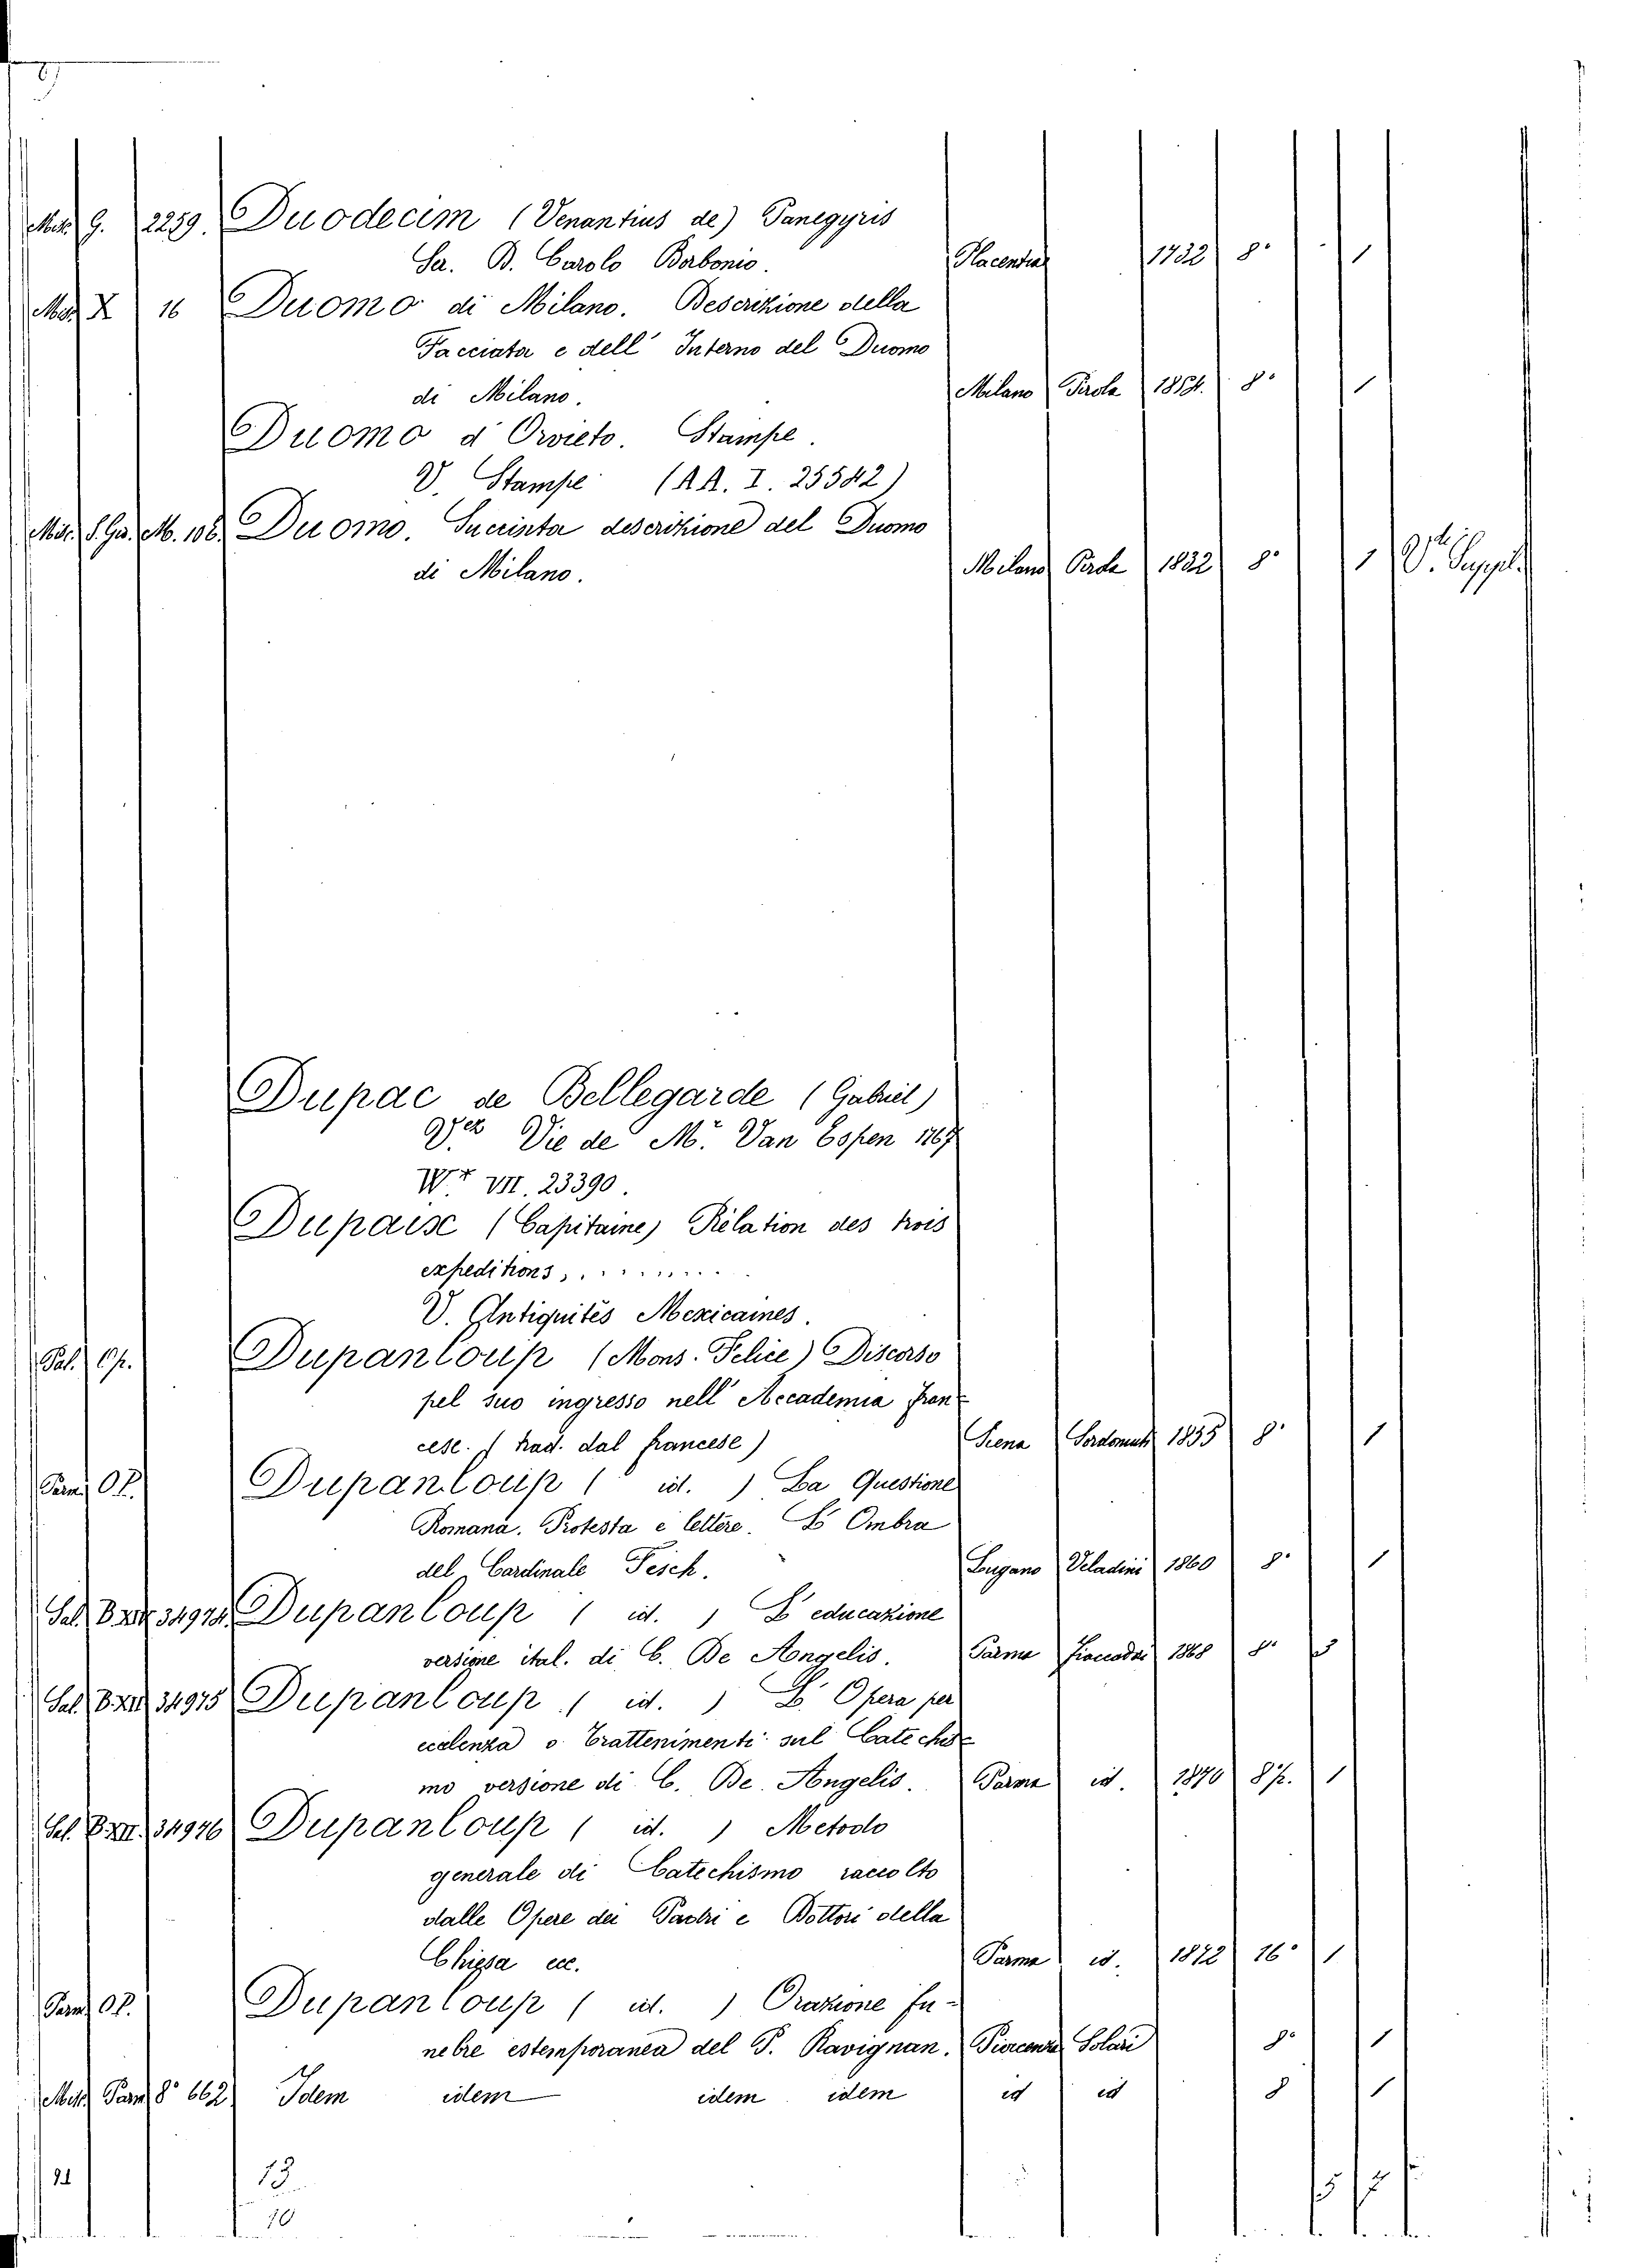 Misc. G. 2259. Duodecim (Venantius de) Panegyris
Ser. B. Carolo Borbonio. Placentiae 1732 8° 1
Misc. X 16 Duomo di Milano. Descrizione della
Facciata e dell' Interno del Duomo
di Milano. Milano Pirola 1854. 8° 1
Duomo d'Orvieto. Stampe.
V. Stampe (AA. I. 25542)
Misc. M. 108. Duomo. Sucinta descrizione del Duomo
di Milano. Milano 1832 8° 1 Suppl.
Dupac de Bellegarde (Gabriel)
Vie de Mr. Van Espen 1767
VII. 23390.
Dupaise (Capitaine) Rélation des trois
expeditions, . . . . . . . .
V. Antiquités Mexicaines.
Pal. Op. Dupanloup (Mons. Felice) Discorso
pel suo ingresso nell' Accademia fran-
cese. (trad. dal francese) Siena 1855 8° 1
Parm. Op. Dupanloup ( id. ) La Questione
Romana. Protesta e lettere. L'Ombra
del Cardinale Fesch. Lugano Veladini 1860 8° 1
Sal. 34974. Dupanloup ( id. ) L'educazione
versione ital. di C. De Angelis. Parma Fiaccadori 1868 8° 3
Sal. 34975 Dupanloup ( id. ) L'Opera per
eccelenza o Trattenimenti sul Catechis-
mo versione di C. De Angelis. Parma id. 1870 8°p. 1
Sal. 34976 Dupanloup ( id. ) Metodo
generale di Catechismo raccolto
dalle Opere dei Padri e Dottori della
Chiesa ecc. Parma id. 1872 16° 1
Parm. Op. Dupanloup ( id. ) Orazione fu-
nebre estemporanea del P. Ravignan. Piacenza Solari 8° 1
Misc. Parm. 8° 662 Idem idem idem idem id id 8 1
21 13 5 7
10